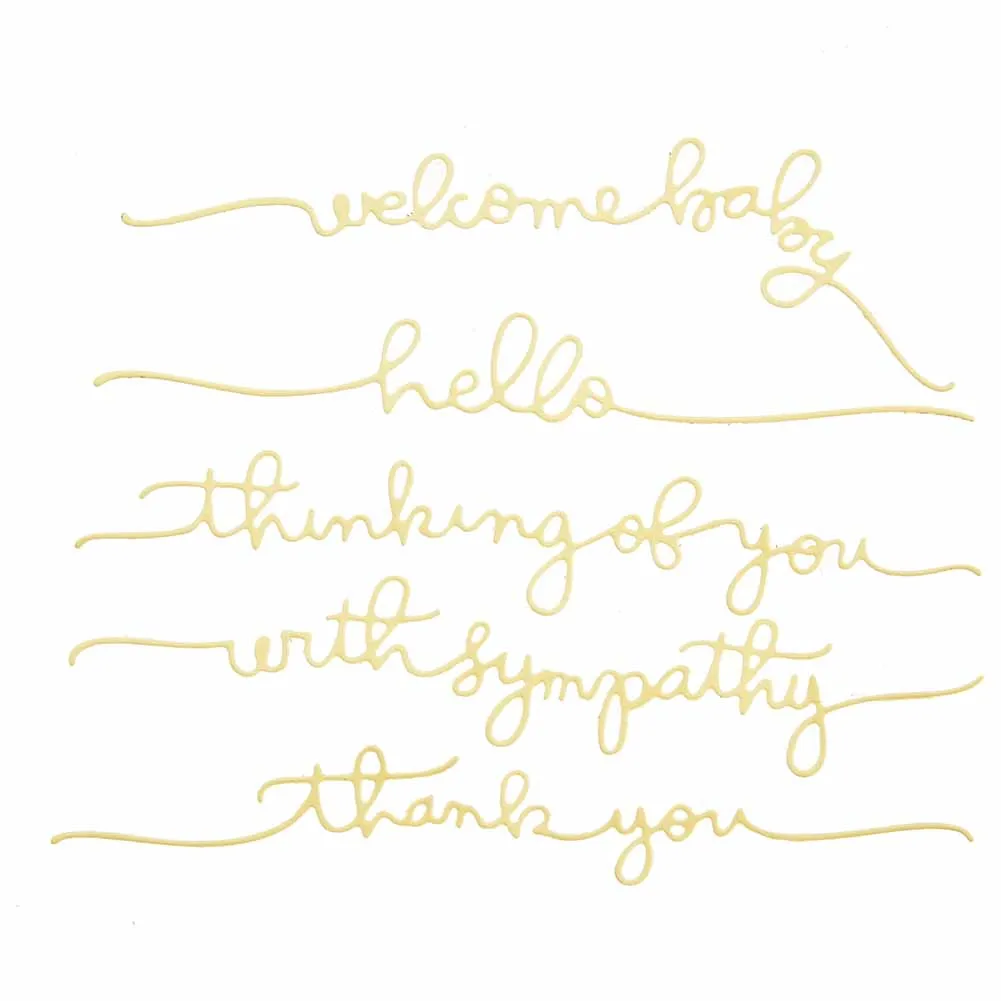 welcome baby
hello
thinking of you
with sympathy
thank you